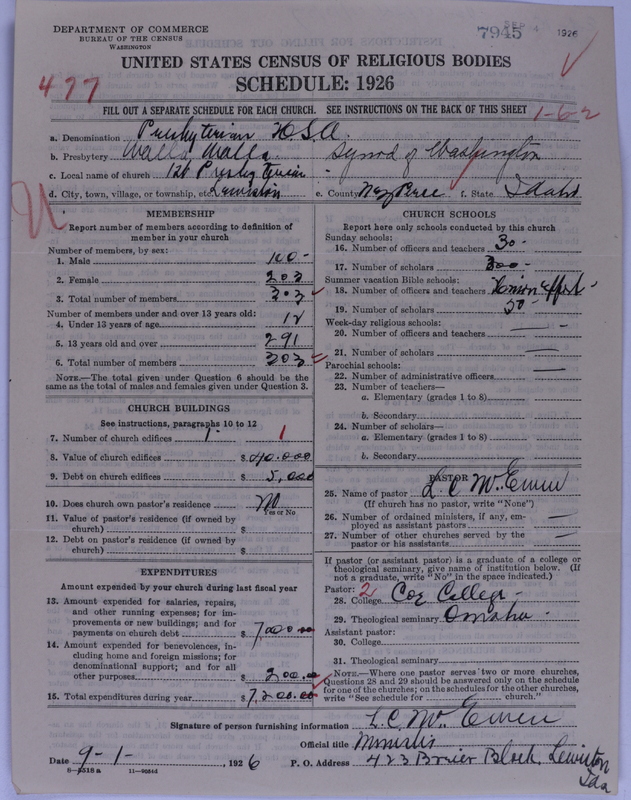 DEPARTMENT OF COMMERCE
BUREAU OF THE CENSUS
WASHINGTON
7945 SEP 4 1926
UNITED STATES CENSUS OF RELIGIOUS BODIES
477
SCHEDULE: 1926
FILL OUT A SEPARATE SCHEDULE FOR EACH CHURCH. SEE INSTRUCTIONS ON THE BACK OF THIS SHEET
1-6-2
a. Denomination Presbyterian U.S.A.
b. Presbytery Walla Walla Synod of Washington
c. Local name of church 1st Presbyterian
d. City, town, village, or township, etc. Lewiston e. County Nez Perce f. State Idaho
MEMBERSHIP
Report number of members according to definition of member in your church
Number of members, by sex:
1. Male 100-
2. Female 203
3. Total number of members 303
Number of members under and over 13 years old:
4. Under 13 years of age 12
5. 13 years old and over 291
6. Total number of members 303
NOTE.—The total given under Question 6 should be the
same as the total of males and females given under Question 3.
CHURCH BUILDINGS
See instructions, paragraphs 10 to 12
7. Number of church edifices 1- 1
8. Value of church edifices $ 40.000
9. Debt on church edifices $ 5,000
10. Does church own pastor's residence No
Yes or No
11. Value of pastor's residence (if owned by
church) $
12. Debt on pastor's residence (if owned by
church) $
EXPENDITURES
Amount expended by your church during last fiscal year
13. Amount expended for salaries, repairs,
and other running expenses; for im-
provements or new buildings; and for
payments on church debt $ 7000.00
14. Amount expended for benevolences, in-
cluding home and foreign missions; for
denominational support; and for all
other purposes $ 200.00
15. Total expenditures during year $ 7,200.00
CHURCH SCHOOLS
Report here only schools conducted by this church
Sunday schools:
16. Number of officers and teachers 30-
17. Number of scholars 300-
Summer vacation Bible schools:
18. Number of officers and teachers Union effort-
19. Number of scholars 50-
Week-day religious schools:
20. Number of officers and teachers
21. Number of scholars
Parochial schools:
22. Number of administrative officers
23. Number of teachers—
a. Elementary (grades 1 to 8)
b. Secondary
24. Number of scholars—
a. Elementary (grades 1 to 8)
b. Secondary
PASTOR
25. Name of pastor L. C. McEwen
(If church has no pastor, write "None")
26. Number of ordained ministers, if any, em-
ployed as assistant pastors
27. Number of other churches served by the
pastor or his assistants
If pastor (or assistant pastor) is a graduate of a college or
theological seminary, give name of institution below. (If
not a graduate, write "No" in the space indicated.)
Pastor: 2
28. College Coe College-
29. Theological seminary Omaha-
Assistant pastor:
30. College
31. Theological seminary
NOTE.—Where one pastor serves two or more churches,
Questions 28 and 29 should be answered only on the schedule
for one of the churches; on the schedules for the other churches,
write "See schedule for church."
Signature of person furnishing information L. C. McEwen
Official title Minister
Date 9-1-, 1926 P. O. Address 423 Brier Block, Lewiston
Ida
8-5518 a 11-9024d